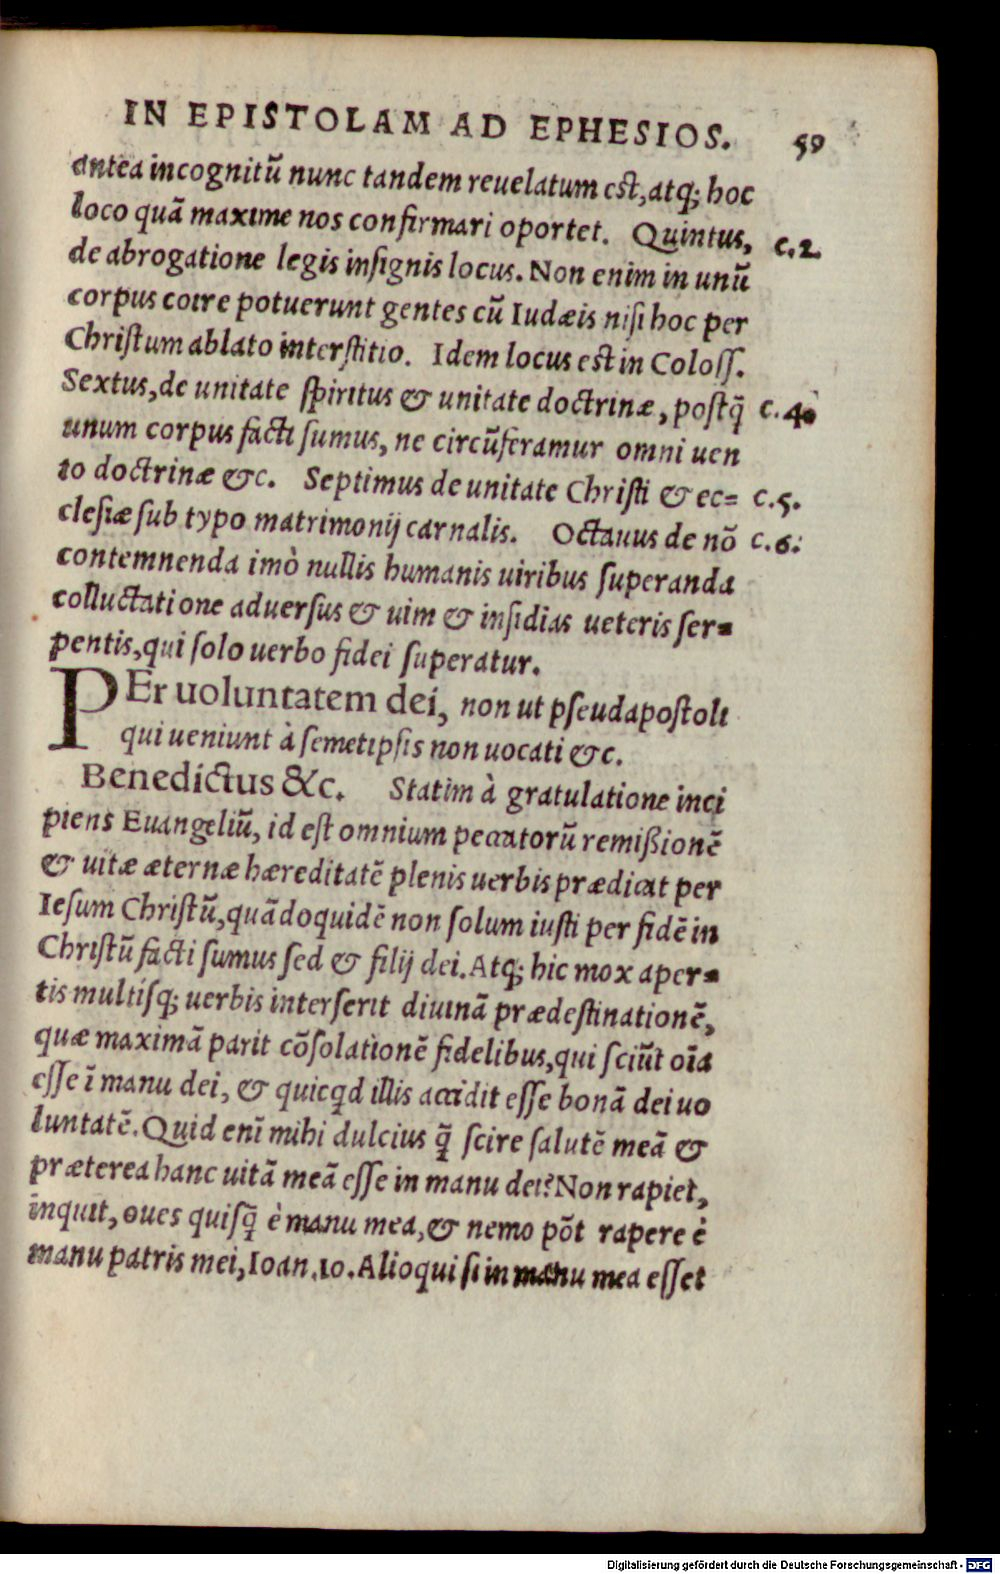 IN EPISTOLAM AD EPHESIOS. 59
antea incognitũ nunc tandem reuelatum est, atq; hoc
loco quã maxime nos confirmari oportet. Quintus, c.2.
de abrogatione legis insignis locus. Non enim in unũ
corpus coire potuerunt gentes cũ Iudæis nisi hoc per
Christum ablato interstitio. Idem locus est in Coloss.
Sextus, de unitate spiritus & unitate doctrinæ, postq̃ c.4.
unum corpus facti sumus, ne circũferamur omni uen
to doctrinæ &c. Septimus de unitate Christi & ec= c.5.
clesiæ sub typo matrimonij carnalis. Octauus de nõ c.6.
contemnenda imò nullis humanis uiribus superanda
colluctatione aduersus & uim & insidias ueteris ser=
pentis, qui solo uerbo fidei superatur.
PEr uoluntatem dei, non ut pseudapostoli
qui ueniunt à semetipsis non uocati &c.
Benedictus &c. Statim à gratulatione inci
piens Euangeliũ, id est omnium peccatorũ remißionẽ
& uitæ æternæ hæreditatẽ plenis uerbis prædicat per
Iesum Christũ, quãdoquidẽ non solum iusti per fidẽ in
Christũ facti sumus sed & filij dei. Atq; hic mox aper=
tis multisq; uerbis interserit diuinã prædestinationẽ,
quæ maximã parit cõsolationẽ fidelibus, qui sciũt oĩa
esse ĩ manu dei, & quicq̃d illis accidit esse bonã dei uo
luntatẽ. Quid enĩ mihi dulcius q̃ scire salutẽ meã &
præterea hanc uitã meã esse in manu dei? Non rapiet,
inquit, oues quisq̃ è manu mea, & nemo põt rapere è
manu patris mei, Ioan.10. Alioqui si in manu mea esset
Digitalisierung gefördert durch die Deutsche Forschungsgemeinschaft - DFG